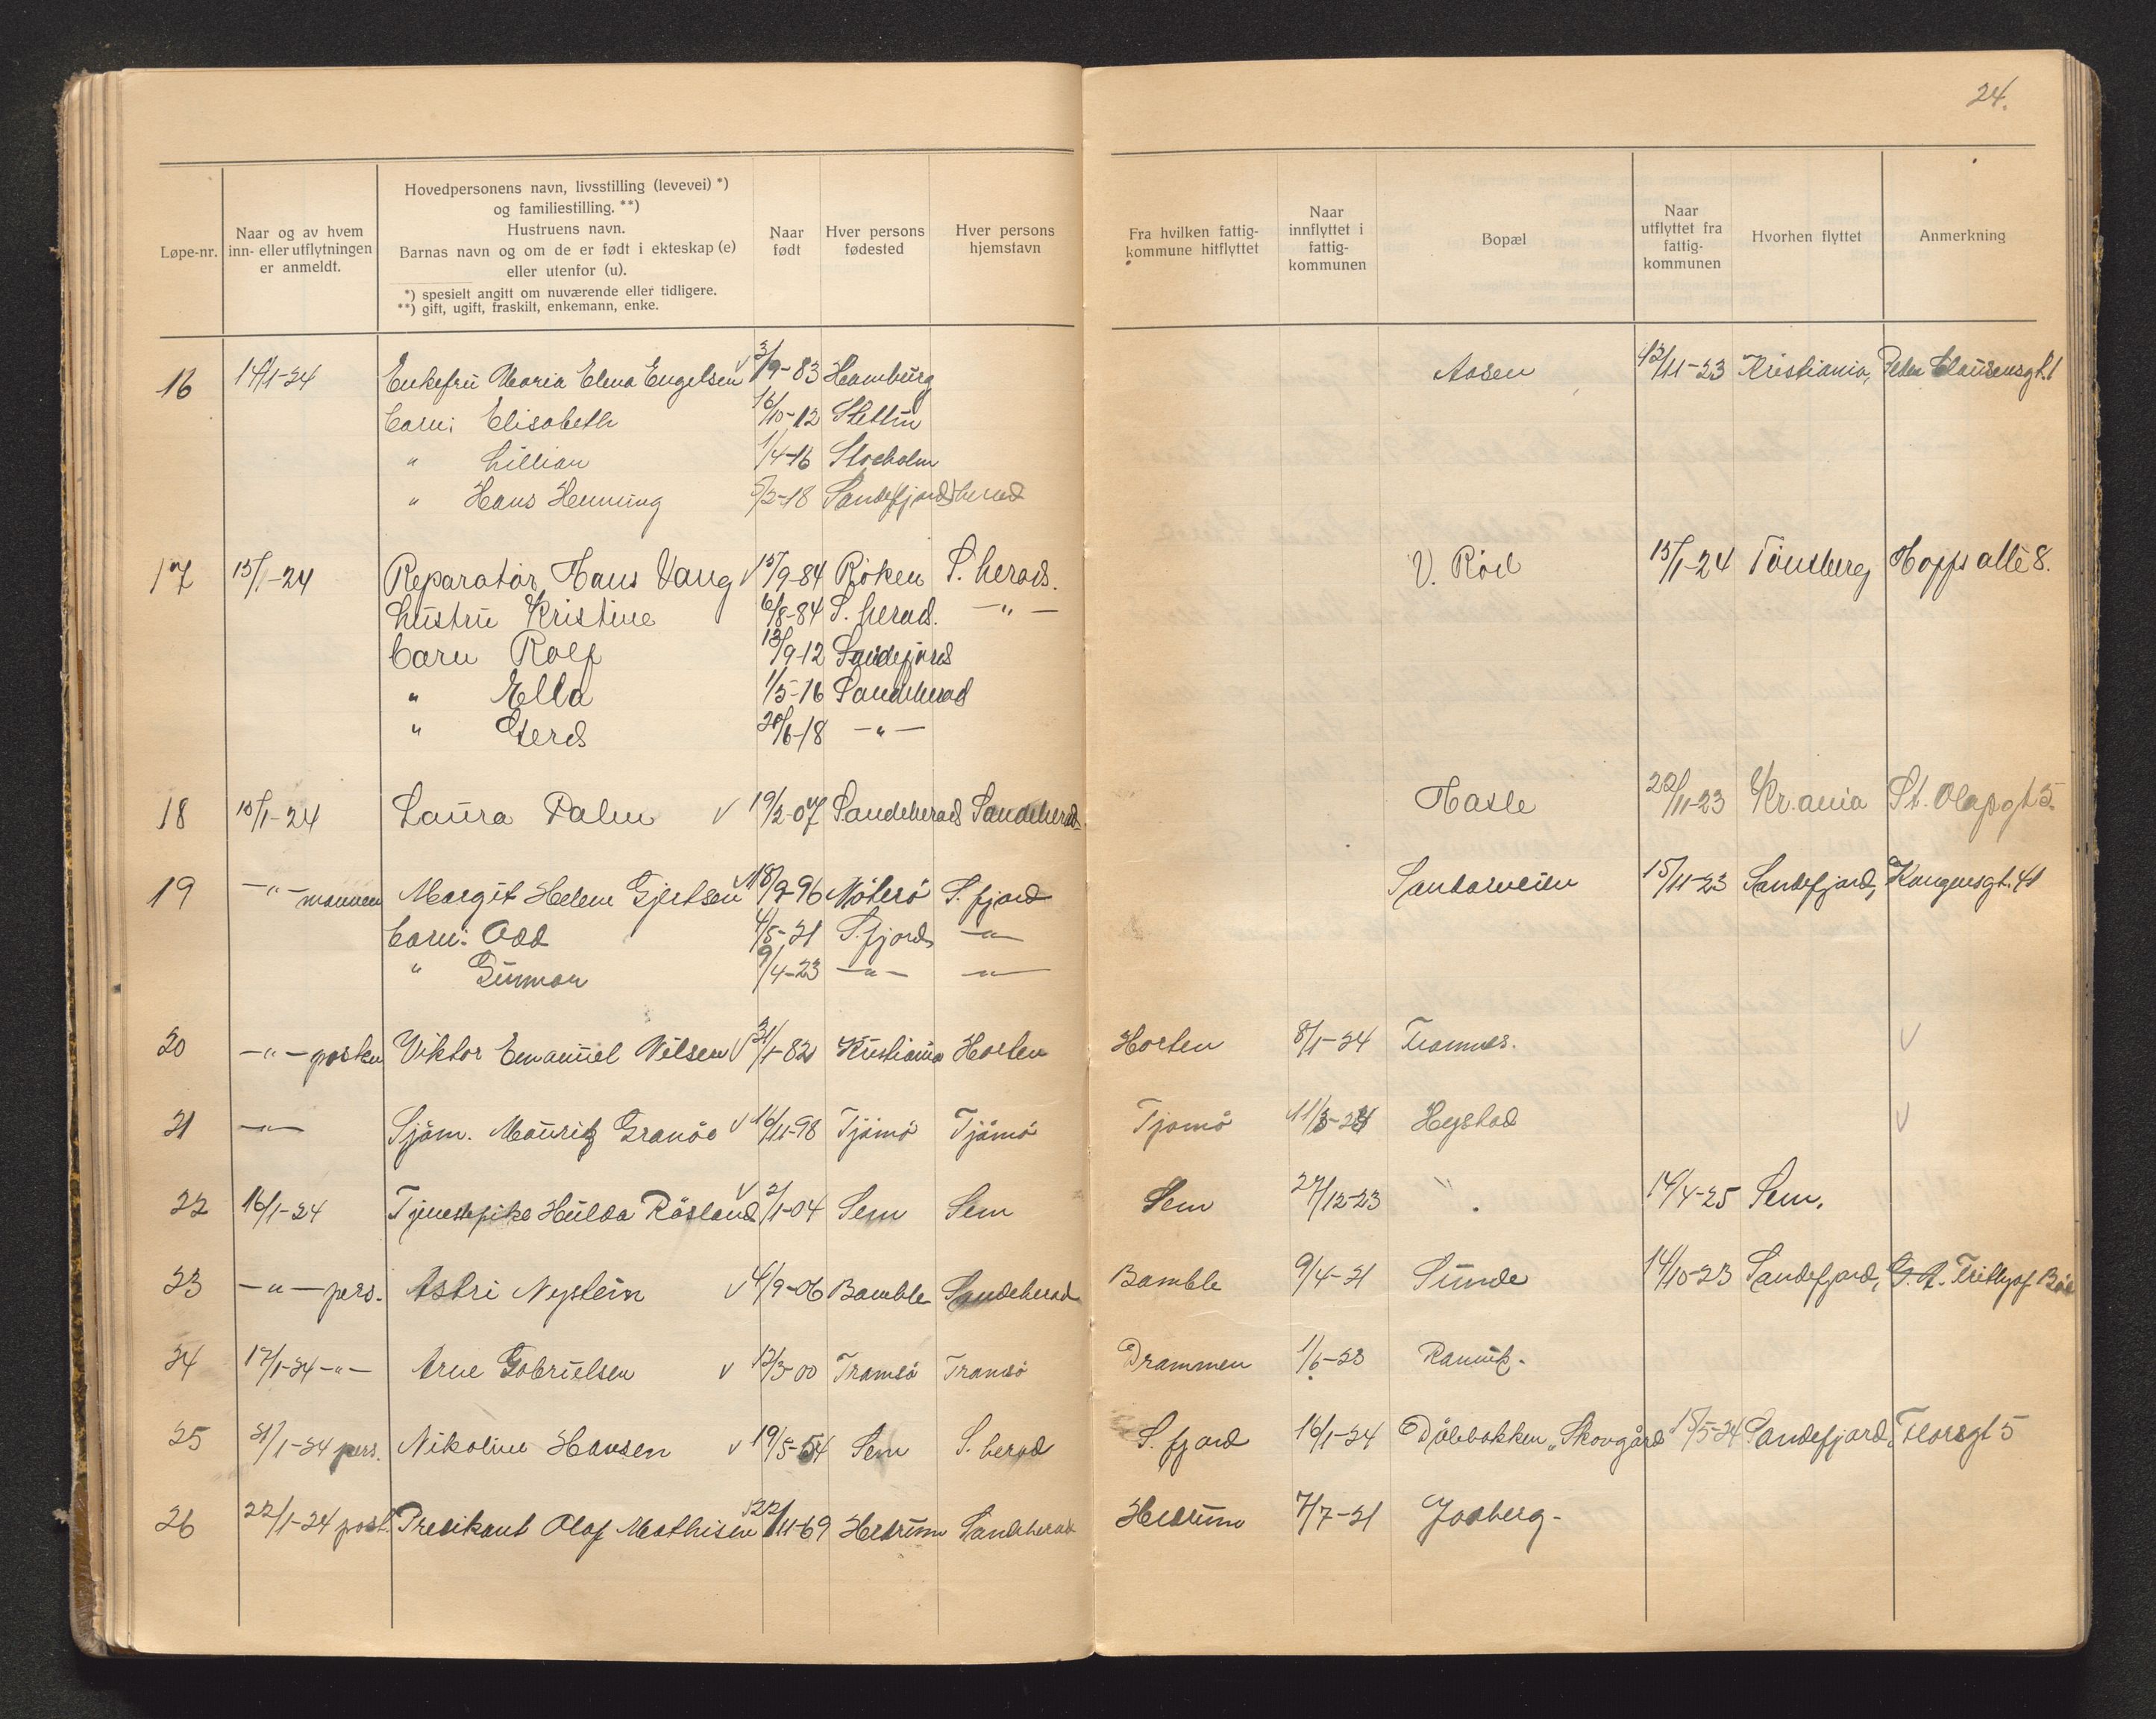 24.
Løpe-nr.
Naar og av hvem
inn- eller utflytningen
er anmeldt.
Hovedpersonens navn, livsstilling (levevei) *)
og familiestilling. **)
Hustruens navn.
Barnas navn og om de er født i ekteskap (e)
eller utenfor (u).
*) spesielt angitt om nuværende eller tidligere.
**) gift, ugift, fraskilt, enkemann, enke.
Naar
født
Hver persons
fødested
Hver persons
hjemstavn
Fra hvilken fattig-
kommune hitflyttet
Naar
innflyttet i
fattig-
kommunen
Bopæl
Naar
utflyttet fra
fattig-
kommunen
Hvorhen flyttet
Anmerkning
16 14/1-24 Enkefru Maria Elena Engelsen √ 3/9-83 Hamburg Aasen 12/11-23 Kristiania, Peter Clausensgt. 1
barn: Elisabeth 16/10-12 Stettin
" Lillian 1/4-16 Stocholm
" Hans Henning 5/2-18 Sandefjord herad
17 15/1-24 Reparatør Hans Vang √ 15/9-84 Röken S. herad. V. Röd 15/1-24 Tönsberg Hopps allé 8.
hustru Kristine 6/8-84 S. herad. —"—
barn Rolf 13/9-12 Sandefjord
" Ella 1/5-16 Sandeherad
" Gerd 20/6-18 —"—
18 15/1-24 Laura Palm √ 19/2-07 Sandeherad Sandeherad Hasle 22/11-23 Kr.ania St. Olafsgt 5.
19 —"— mannen Margit Helene Gjertsen √ 18/9-96 Nöterö S. fjord 15/11-23 Sandefjord, Kongensgt. 41
barn: Odd 4/5-21 S. fjord —"—
" Gunnar 9/4-23 —"— —"—
20 —"— posten Viktor Emanuel Nilsen √ 31/1-82 Kristiania Horten Horten 8/1-24 Framnes. √
21 —"— Sjöm. Mauritz Granöe √ 16/11-98 Tjömö Tjömö Tjömö Hystad √
22 16/1-24 Tjenestepike Hulda Räsland √ 2/1-04 Sem Sem Sem 27/12-23 " 14/4-25 Sem.
23 —"— pers. Astri Nystein √ 4/9-06 Bamble Sandeherad Bamble 9/4-21 Sunde 14/10-23 Sandefjord,
24 17/1-24 —"— Arne Gabrielsen √ 12/3-00 Tromsö Tromsö Drammen 1/6-23 Ranvik.
25 21/1-24 pers. Nikoline Hansen √ 19/5-54 Sem S. herad S. fjord 16/1-24 "Skovgård" 15/5-24 Sandefjord,
26 22/1-24 post. Predikant Olaf Mathisen 22/11-69 Hedrum Sandeherad Hedrum 7/7-21 Joaberg.